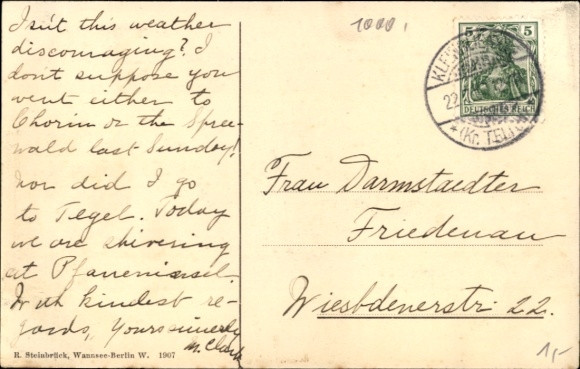 Isn't this weather
discouraging? I
don't suppose you
went either to
Chorin or the Spree-
wald last Sunday!
Nor did I go
to Tegel. Today
we are shivering
at
With kindest re-
gards, Yours sincerely
M. Clark
R. Steinbrück, Wannsee-Berlin W. 1907
1000,
5 5
DEUTSCHES REICH
22
*(Kr. TELTOW)
Frau Darmstaedter
Friedenau
Wiesbdenerstr. 22.
1,-